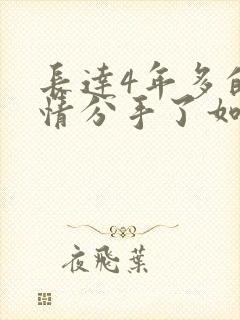 長達4年多的
情分手了如
夜飛葉